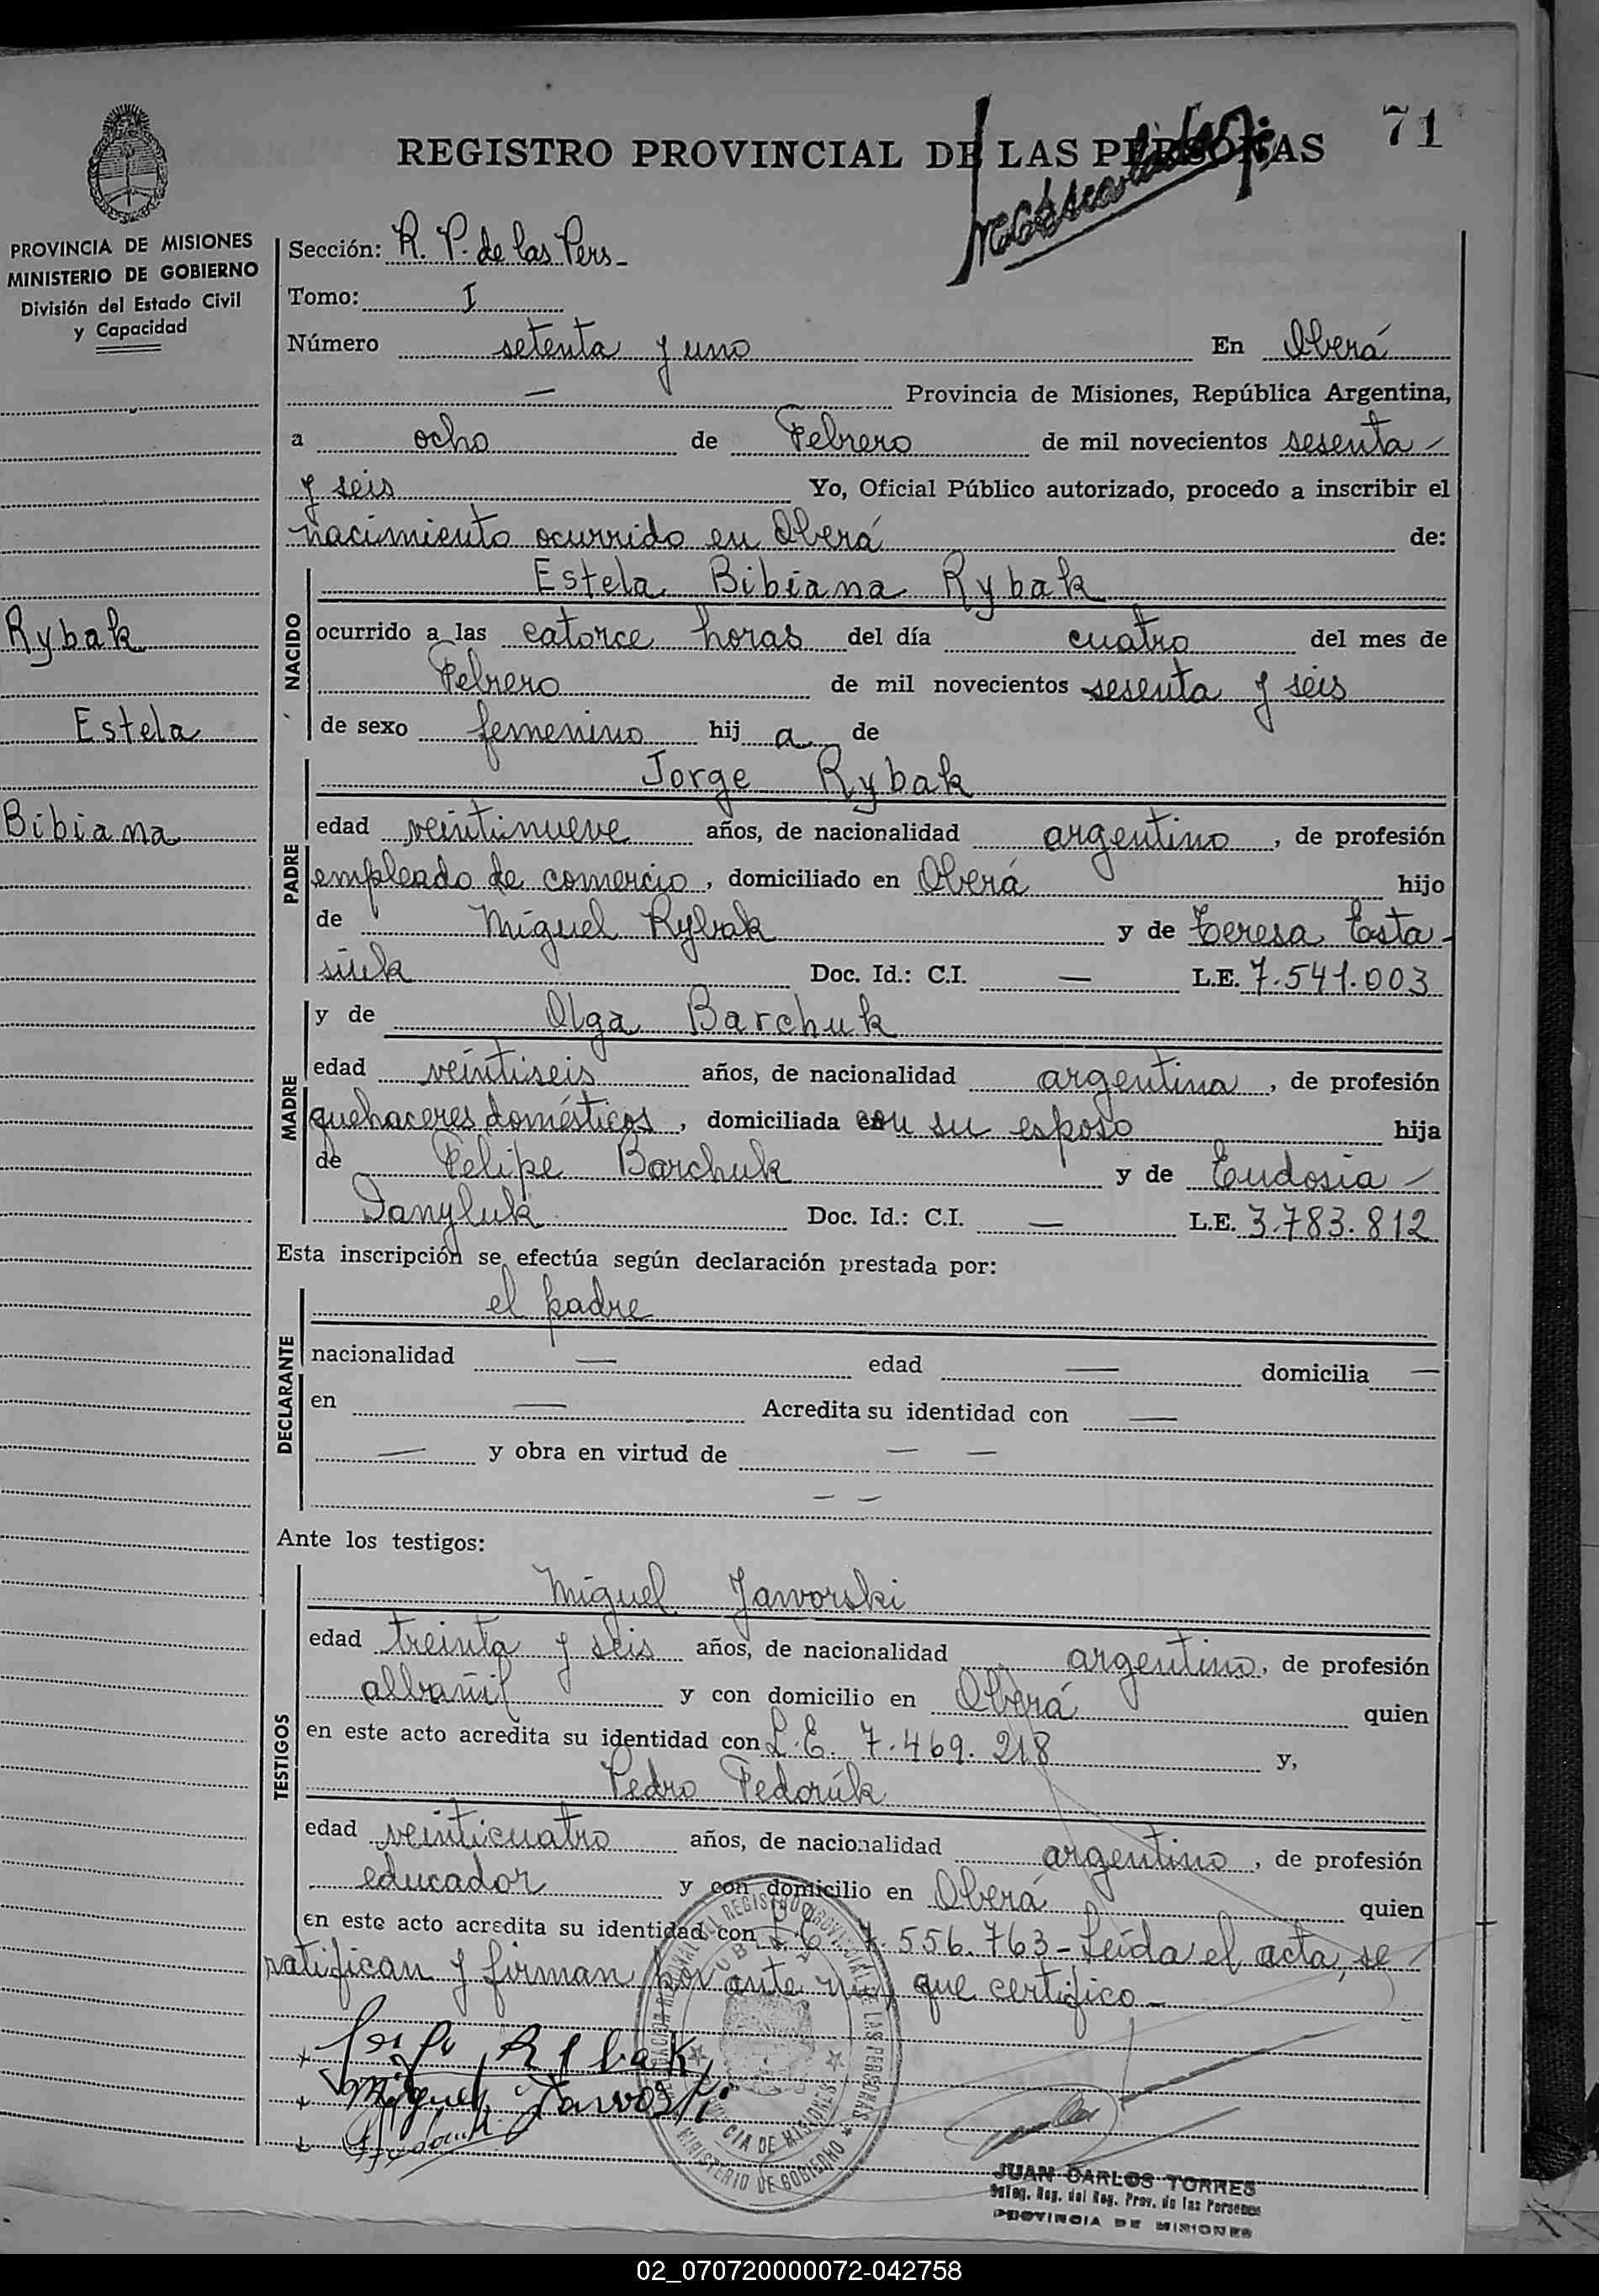 REGISTRO PROVINCIAL DE LAS PERSONAS
71
PROVINCIA DE MISIONES
MINISTERIO DE GOBIERNO
División del Estado Civil
y Capacidad
Rybak
Estela
Bibiana
Sección: R. P. de las Pers-
Tomo: I
Número setenta y uno En Oberá
— Provincia de Misiones, República Argentina,
a ocho de Febrero de mil novecientos sesenta —
y seis Yo, Oficial Público autorizado, procedo a inscribir el
nacimiento ocurrido en Oberá de:
NACIDO
Estela Bibiana Rybak
ocurrido a las catorce horas del día cuatro del mes de
Febrero de mil novecientos sesenta y seis
de sexo femenino hij a de
PADRE
Jorge Rybak
edad veintinueve años, de nacionalidad argentino, de profesión
empleado de comercio, domiciliado en Oberá hijo
de Miguel Rybak y de Teresa Esta-
siuk Doc. Id.: C.I. — L.E. 7.541.003
MADRE
y de Olga Barchuk
edad veintiseis años, de nacionalidad argentina, de profesión
quehaceres domésticos, domiciliada con su esposo hija
de Felipe Barchuk y de Eudosia —
Danyluk Doc. Id.: C.I. — L.E. 3.783.812
Esta inscripción se efectúa según declaración prestada por:
DECLARANTE
el padre
nacionalidad — edad — domicilia —
en — Acredita su identidad con —
— y obra en virtud de — —
— —
Ante los testigos:
TESTIGOS
Miguel Jaworski
edad treinta y seis años, de nacionalidad argentino, de profesión
albañil y con domicilio en Oberá quien
en este acto acredita su identidad con L.E. 7.469.218 y,
Pedro Fedorúk
edad veinticuatro años, de nacionalidad argentino, de profesión
educador y con domicilio en Oberá quien
en este acto acredita su identidad con L.E. 7.556.763- Leída el acta, se
ratifican y firman por ante mí que certifico-
REGISTRO PROVINCIAL DE LAS PERSONAS
PROVINCIA DE MISIONES
MINISTERIO DE GOBIERNO
JUAN CARLOS TORRES
Deleg. Reg. del Reg. Prov. de las Personas
PROVINCIA DE MISIONES
02_070720000072-042758